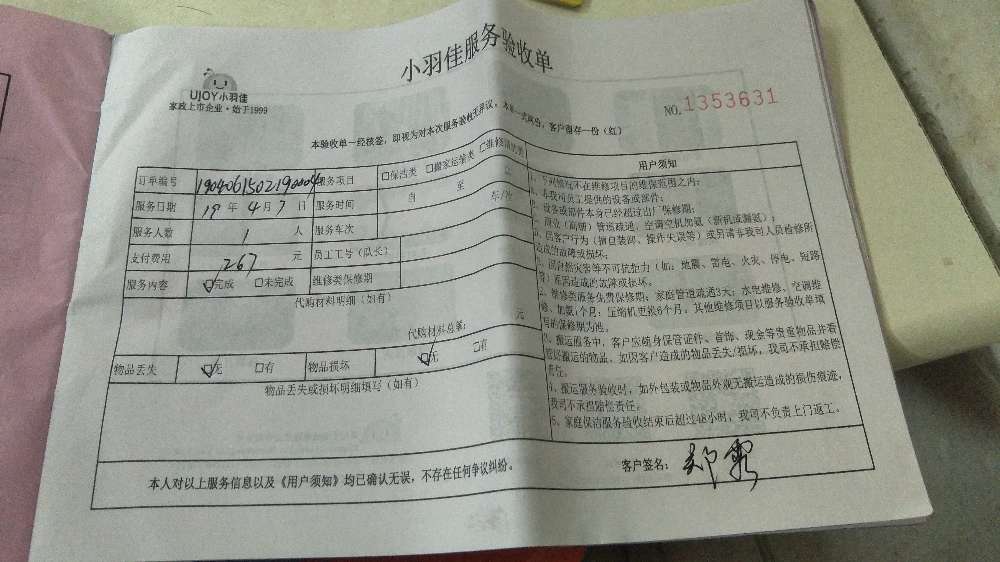 小羽佳服务验收单
UJOY小羽佳
家政上市企业·始于1999
NO.1353631
本验收单一经核签，即视为对本次服务验收无异议，本单一式两份，客户留存一份（红）
订单编号 190406150219000 服务项目 □保洁类 □搬家运输类
服务日期 19 年 4 月 7 日 服务时间 自 至
服务人数 1 人 服务车次 车/次
支付费用 267 元 员工工号（队长）
服务内容 ☑完成 □未完成 维修类保修期
代购材料明细（如有）
代购材料总额： 元
物品丢失 ☑无 □有 物品损坏 ☑无 □有
物品丢失或损坏明细填写（如有）
用户须知
不在维修项目的维保范围之内：
非我司员工提供的设备或部件；
设备或部件本身已经超过出厂保修期；
管道疏通、空调空机加氨（新机或漏氨）；
因客户行为（擅自装卸、操作失误等）或另请非我司人员检修所
造成的故障或损坏；
因自然灾害等不可抗拒力（如：地震、雷电、火灾、停电、短路
等）原因造成的故障或损坏。
2、维修类服务免费保修期：家庭管道疏通3天；水电维修、空调维
修、加氨1个月；压缩机更换6个月。其他维修项目以服务验收单填
写的保修期为准。
3、搬运服务中，客户应随身保管证件、首饰、现金等贵重物品并看
管搬运的物品，如因客户造成的物品丢失/损坏，我司不承担赔偿
责任。
4、搬运服务验收时，如外包装或物品外观无搬运造成的损伤痕迹，
我司不承担赔偿责任。
5、家庭保洁服务验收结束后超过48小时，我司不负责上门返工。
本人对以上服务信息以及《用户须知》均已确认无误，不存在任何争议纠纷。
客户签名：